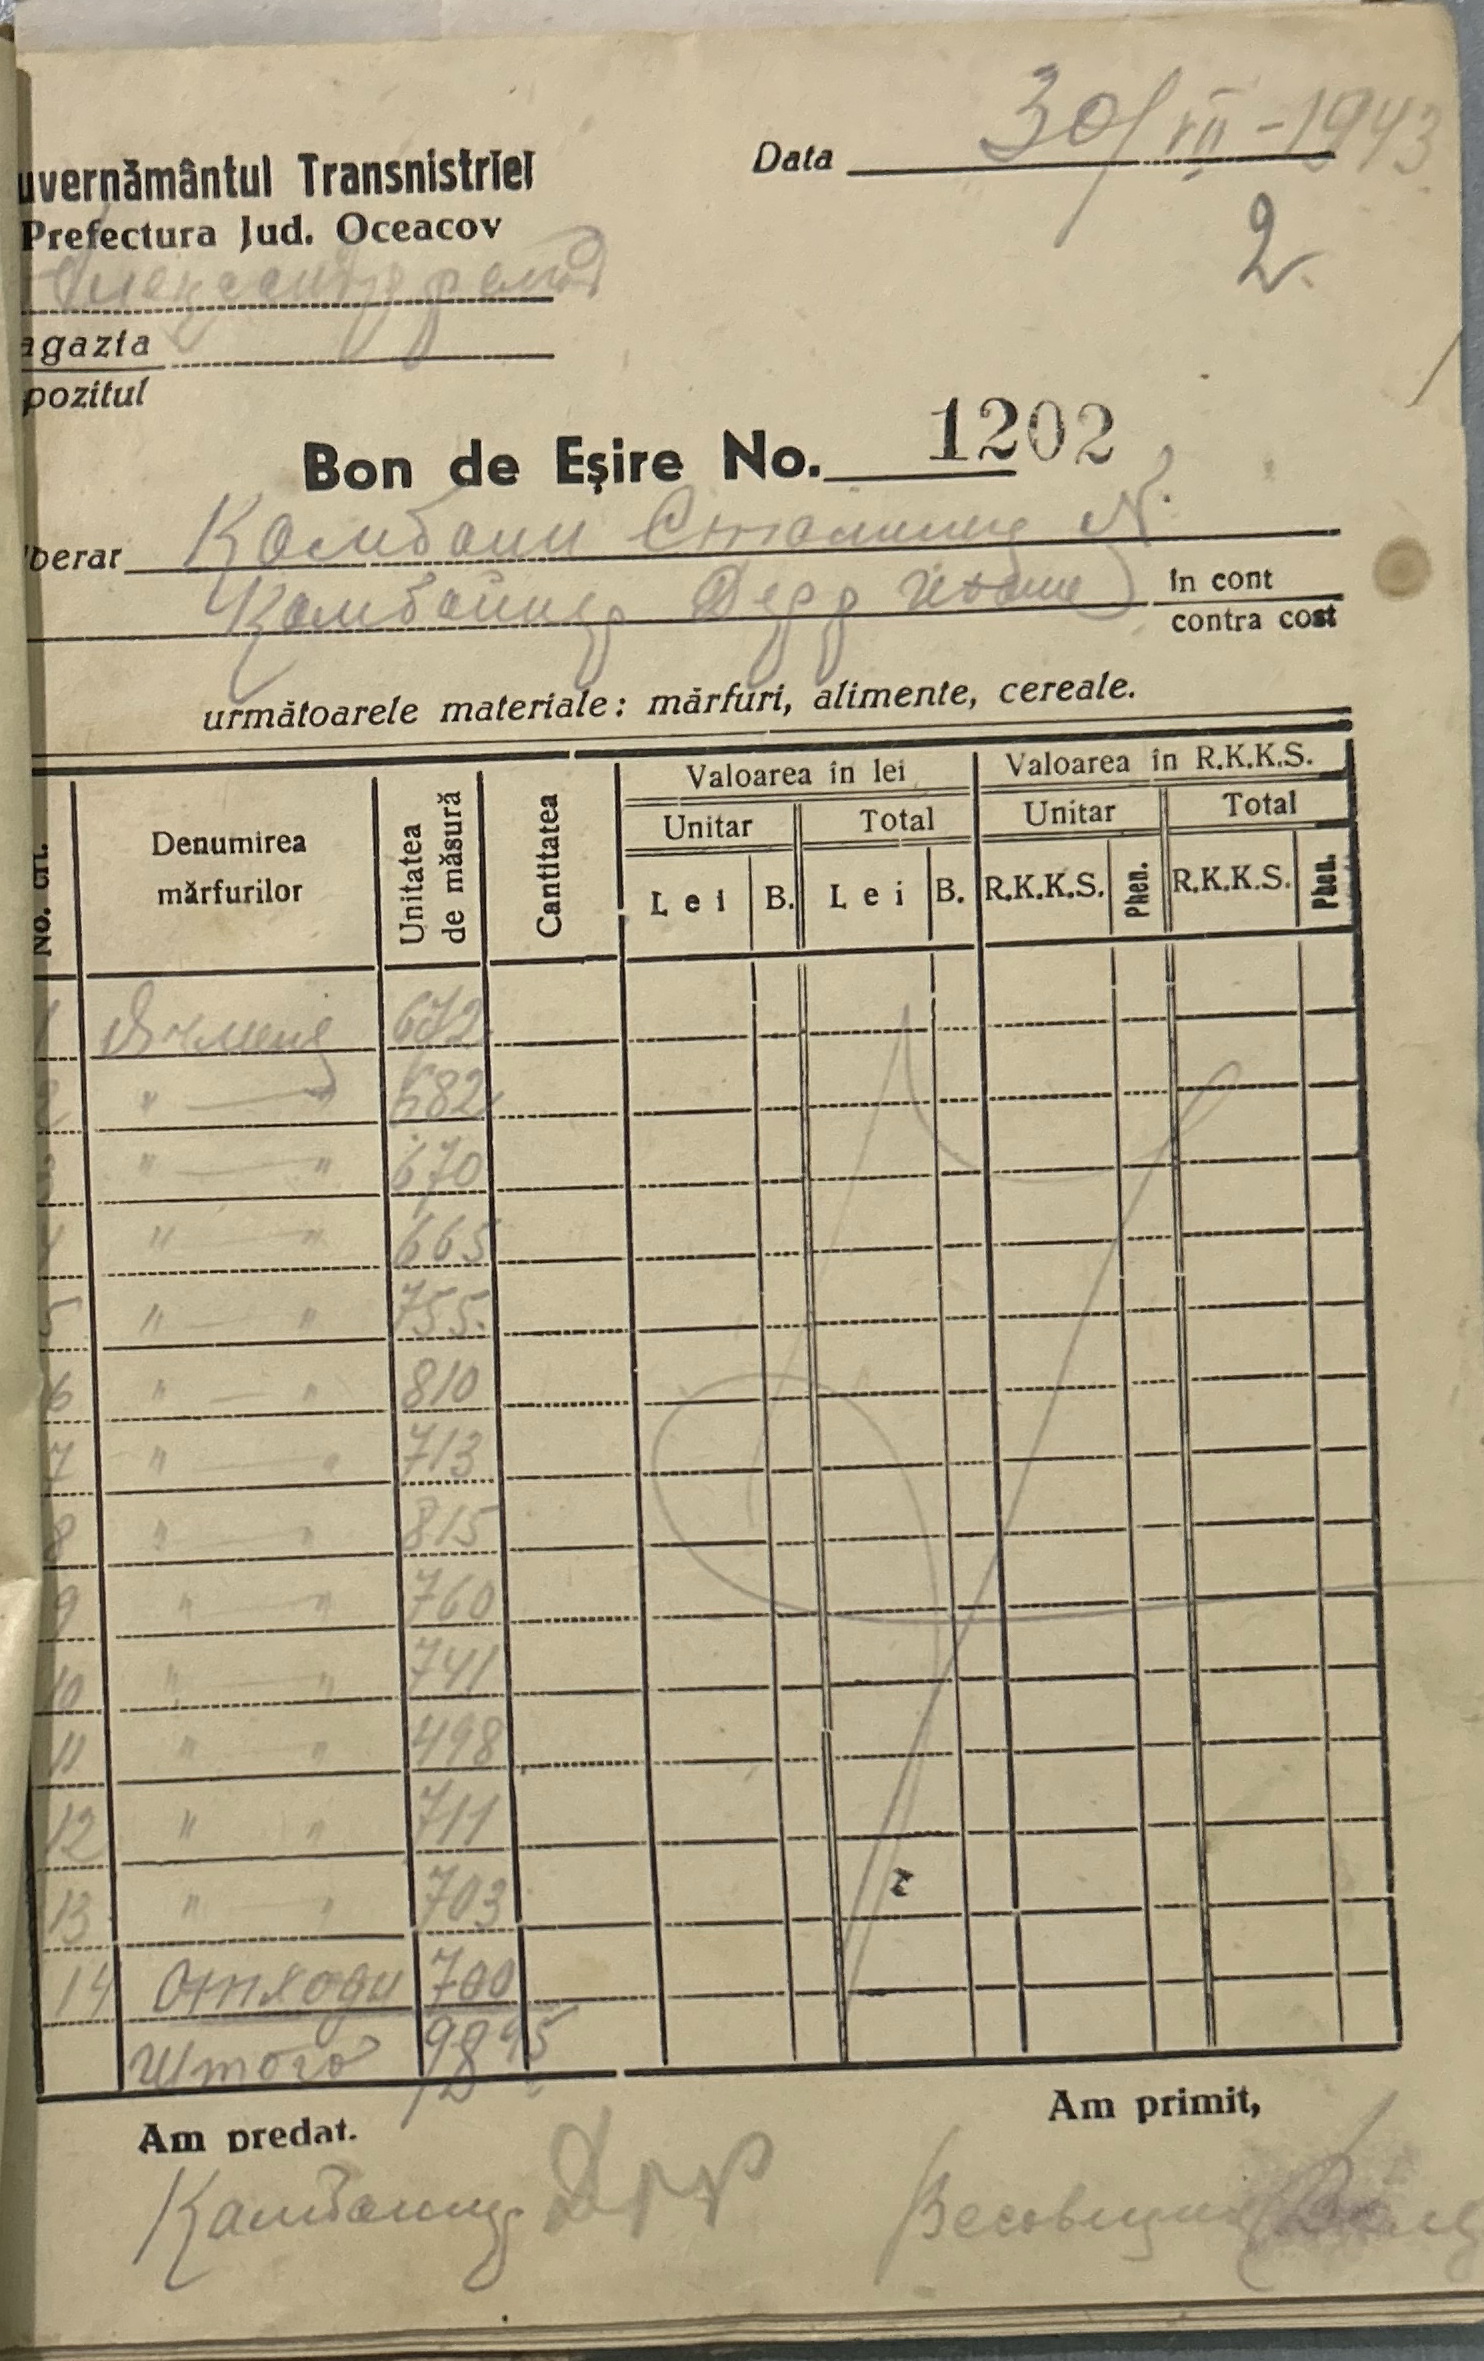 uvernământul Transnistriei
Prefectura Jud. Oceacov
Data 30/VII-1943
2.
Александрфельд
agazia
pozitul
Bon de Eşire No. 1202
berar Комбайн Сталинец №
Комбайнер Дерр in cont
contra cost
următoarele materiale: mărfuri, alimente, cereale.
No. crt. Denumirea mărfurilor Unitatea de măsură Cantitatea Valoarea în lei Valoarea în R.K.K.S.
Unitar Total Unitar Total
Lei B. Lei B. R.K.K.S. Phen. R.K.K.S. Phen.
1 Ячмень 672
2 " — " 682
3 " — " 670
4 " — " 665
5 " — " 755
6 " — " 810
7 " — " 713
8 " — " 815
9 " — " 760
10 " — " 741
11 " — " 498
12 " " 711
13 " — " 703
14 Отходи 700
Итого 9895
Am predat. Am primit,
Комбайнер Дерр Весовщик